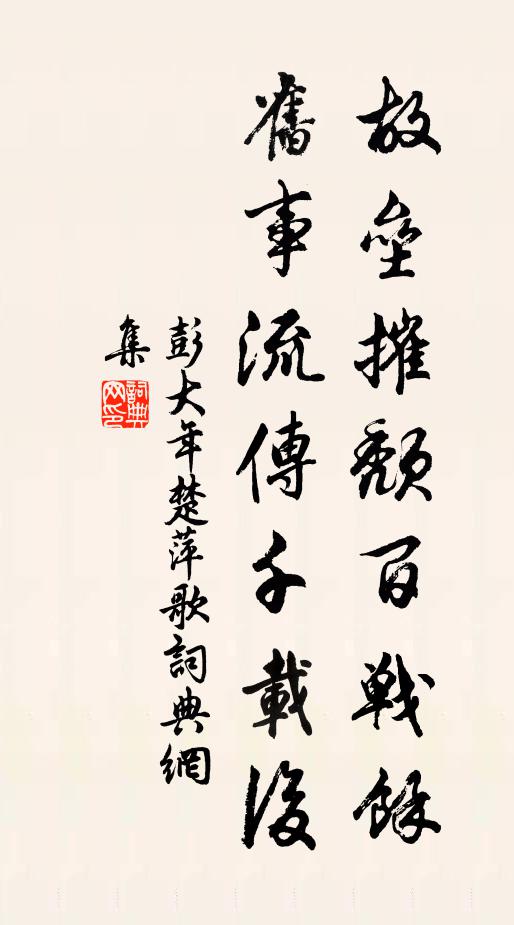 故壘摧頹百戰餘
舊事流傳千載後
彭大年楚萍歌詞典網
集
詞典
网印